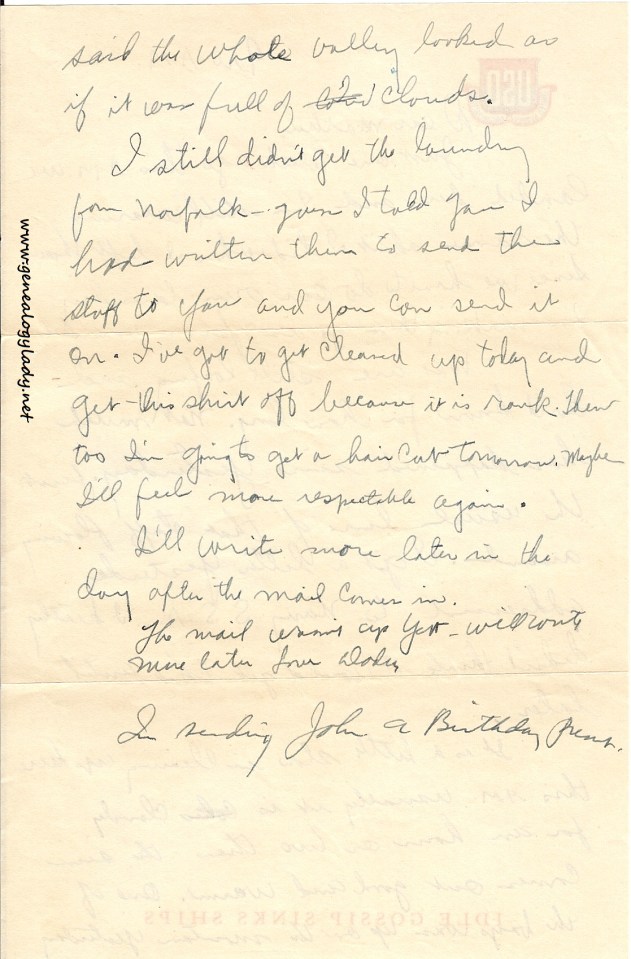 said the whole valley looked as
if it was full of clouds.
I still didn't get the laundry
from Norfolk - guess I told you I
had written them to send the
stuff to you and you can send it
on. I've got to get cleaned up today and
get this shirt off because it is rank. Then
too I'm going to get a hair cut tomorrow. Maybe
I'll feel more respectable again.
I'll write more later in the
day after the mail comes in.
The mail wasn't up yet - will write
more later Love Daddy
I'm sending John a Birthday
www.genealogylady.net
USO
IDLE GOSSIP SINKS SHIPS